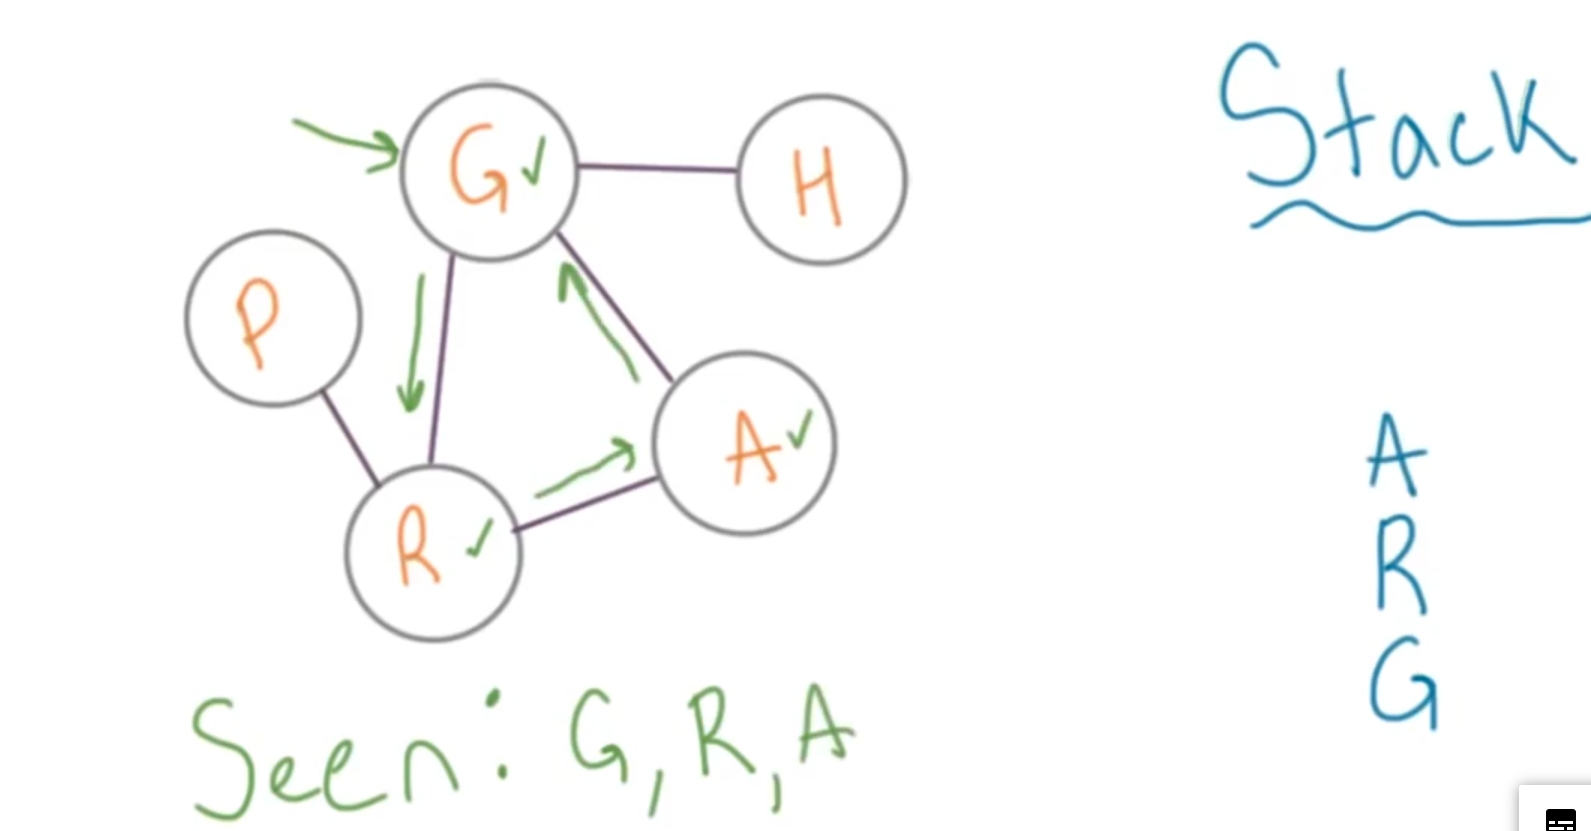 G
H
P
A
R
Seen: G, R, A
Stack
A
R
G